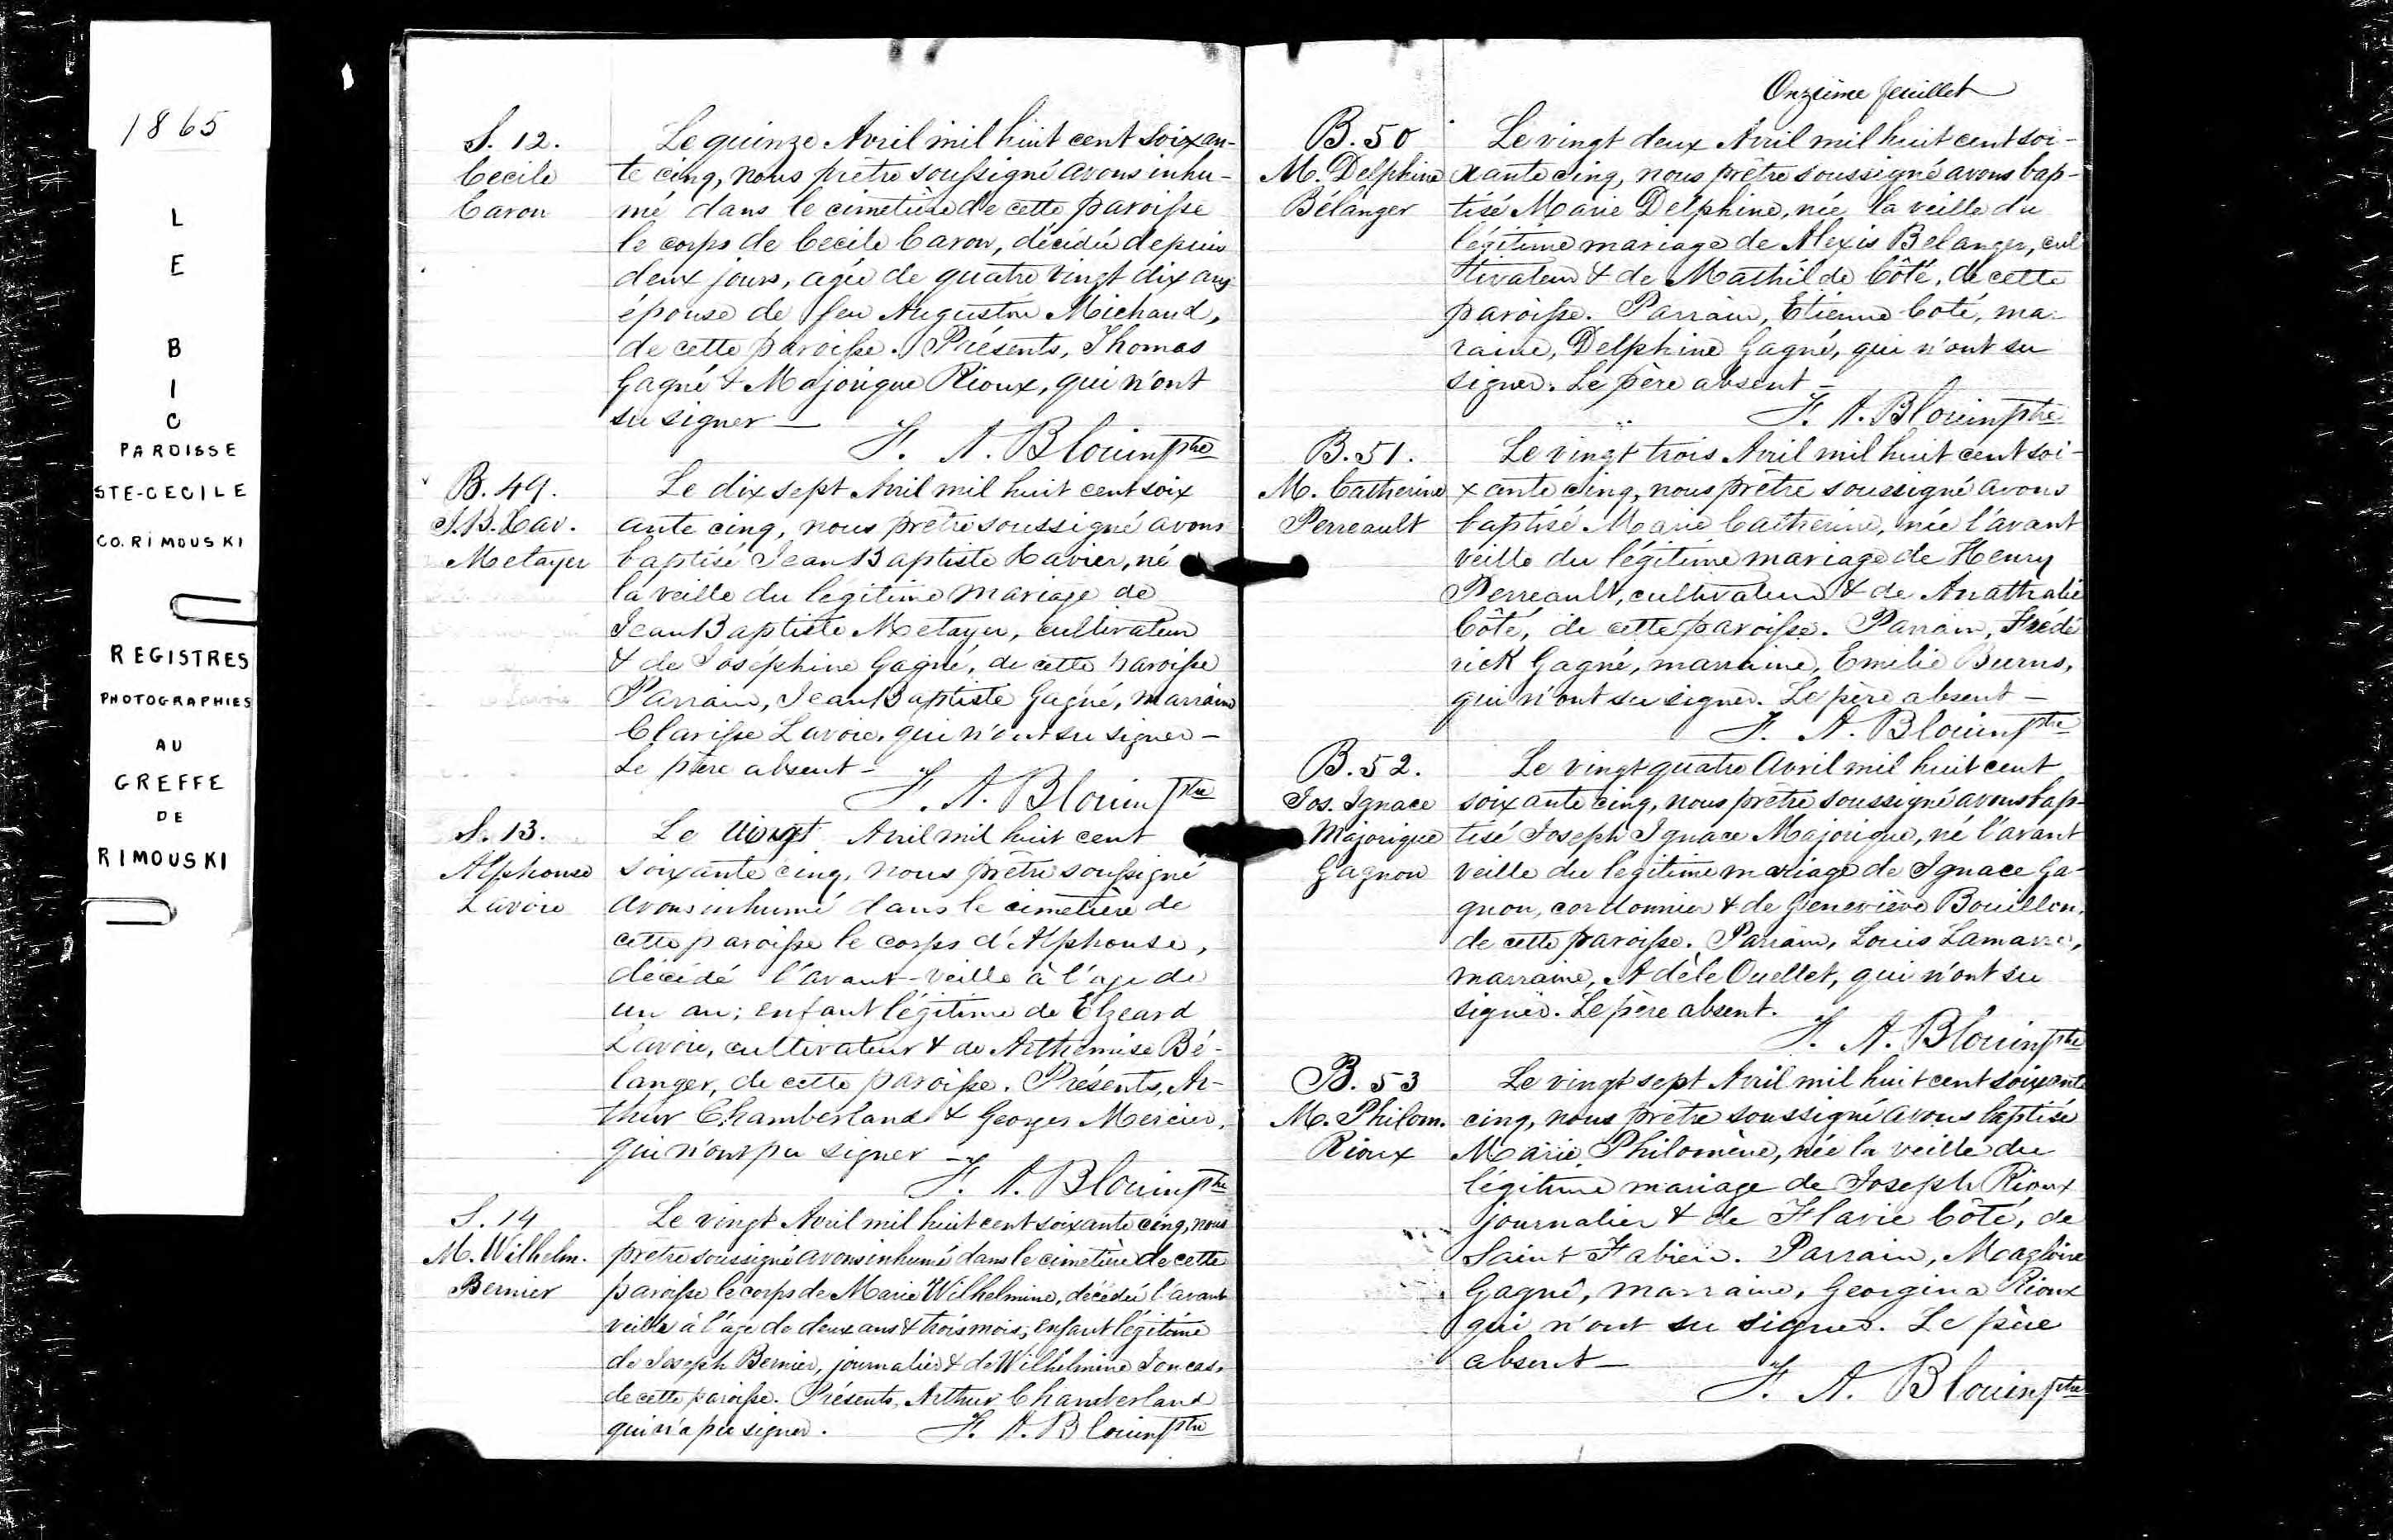 1865
L
E
B
I
C
PAROISSE
STE-CECILE
CO. RIMOUSKI
REGISTRES
PHOTOGRAPHIES
AU
GREFFE
DE
RIMOUSKI
S. 12.
Cecile
Caron
Le quinze Avril mil huit cent soixan-
te cinq, nous prêtre soussigné avons inhu-
mé dans le cimetière de cette paroisse
le corps de Cecile Caron, décédée depuis
deux jours, agée de quatre vingt dix ans
épouse de feu Augustin Michaud,
de cette paroisse. Présents, Thomas
Gagné & Majorique Rioux, qui n'ont
su signer —
F. A. Blouin ptre
B. 49.
J.B. Xav.
Metayer
Le dix sept Avril mil huit cent soix
ante cinq, nous prêtre soussigné avons
baptisé Jean Baptiste Xavier, né
la veille du legitime mariage de
Jean Baptiste Metayer, cultivateur
& de Joséphine Gagné, de cette paroisse
Parrain, Jean Baptiste Gagné, marraine
Clarisse Lavoie, qui n'ont su signer –
Le père absent –
F. A. Blouin ptre
S. 13.
Alphonse
Lavoie
Le vingt Avril mil huit cent
soixante cinq, nous prêtre soussigné
avons inhumé dans le cimetière de
cette paroisse le corps d'Alphonse,
décédé l'avant-veille à l'age de
un an; enfant légitime de Elzeard
Lavoie, cultivateur & de Arthemise Bé-
langer, de cette paroisse. Présents, Ar-
thur Chamberland & Georges Mercier,
qui n'ont pu signer –
F. A. Blouin ptre
S. 14
M. Wilhelm.
Bernier
Le vingt Avril mil huit cent soixante cinq, nous
prêtre soussigné avons inhumé dans le cimetière de cette
paroisse le corps de Marie Wilhelmine, décédée l'avant
veille à l'age de deux ans & trois mois; enfant légitime
de Joseph Bernier, journalier & de Wilhelmine Joncas,
de cette paroisse. Présents, Arthur Chamberland
qui n'a pu signer.
F. A. Blouin ptre
Onzième feuillet
B. 50
M. Delphine
Bélanger
Le vingt deux Avril mil huit cent soi-
xante cinq, nous prêtre soussigné avons bap-
tisé Marie Delphine, née la veille du
légitime mariage de Alexis Belanger, cul
tivateur & de Mathilde Côté, de cette
paroisse. Parrain, Etienne Coté, ma-
raine, Delphine Gagné, qui n'ont su
signer. Le père absent –
F. A. Blouin ptre
B. 51.
M. Catherine
Perreault
Le vingt trois Avril mil huit cent soi-
xante cinq, nous prêtre soussigné avons
baptisé Marie Catherine, née l'avant
veille du légitime mariage de Henry
Perreault, cultivateur & de Anathalie
Côté, de cette paroisse. Parrain, Frédé
rick Gagné, marraine, Emilie Burns,
qui n'ont su signer. Le père absent –
F. A. Blouin ptre
B. 52.
Jos. Ignace
Majorique
Gagnon
Le vingt quatre Avril mil huit cent
soixante cinq, nous prêtre soussigné avons bap-
tisé Joseph Ignace Majorique, né l'avant
veille du legitime mariage de Ignace Ga-
gnon, cordonnier & de Geneviève Bouillon,
de cette paroisse. Parrain, Louis Lamarre,
marraine, Adèle Ouellet, qui n'ont su
signer. Le père absent.
F. A. Blouin ptre
B. 53
M. Philom.
Rioux
Le vingt sept Avril mil huit cent soixante
cinq, nous prêtre soussigné avons baptisé
Marie Philomène, née la veille du
légitime mariage de Joseph Rioux
journalier & de Flavie Côté, de
Saint Fabien. Parrain, Magloire
Gagné, marraine, Georgina Rioux
qui n'ont su signer. Le père
absent –
F. A. Blouin ptre